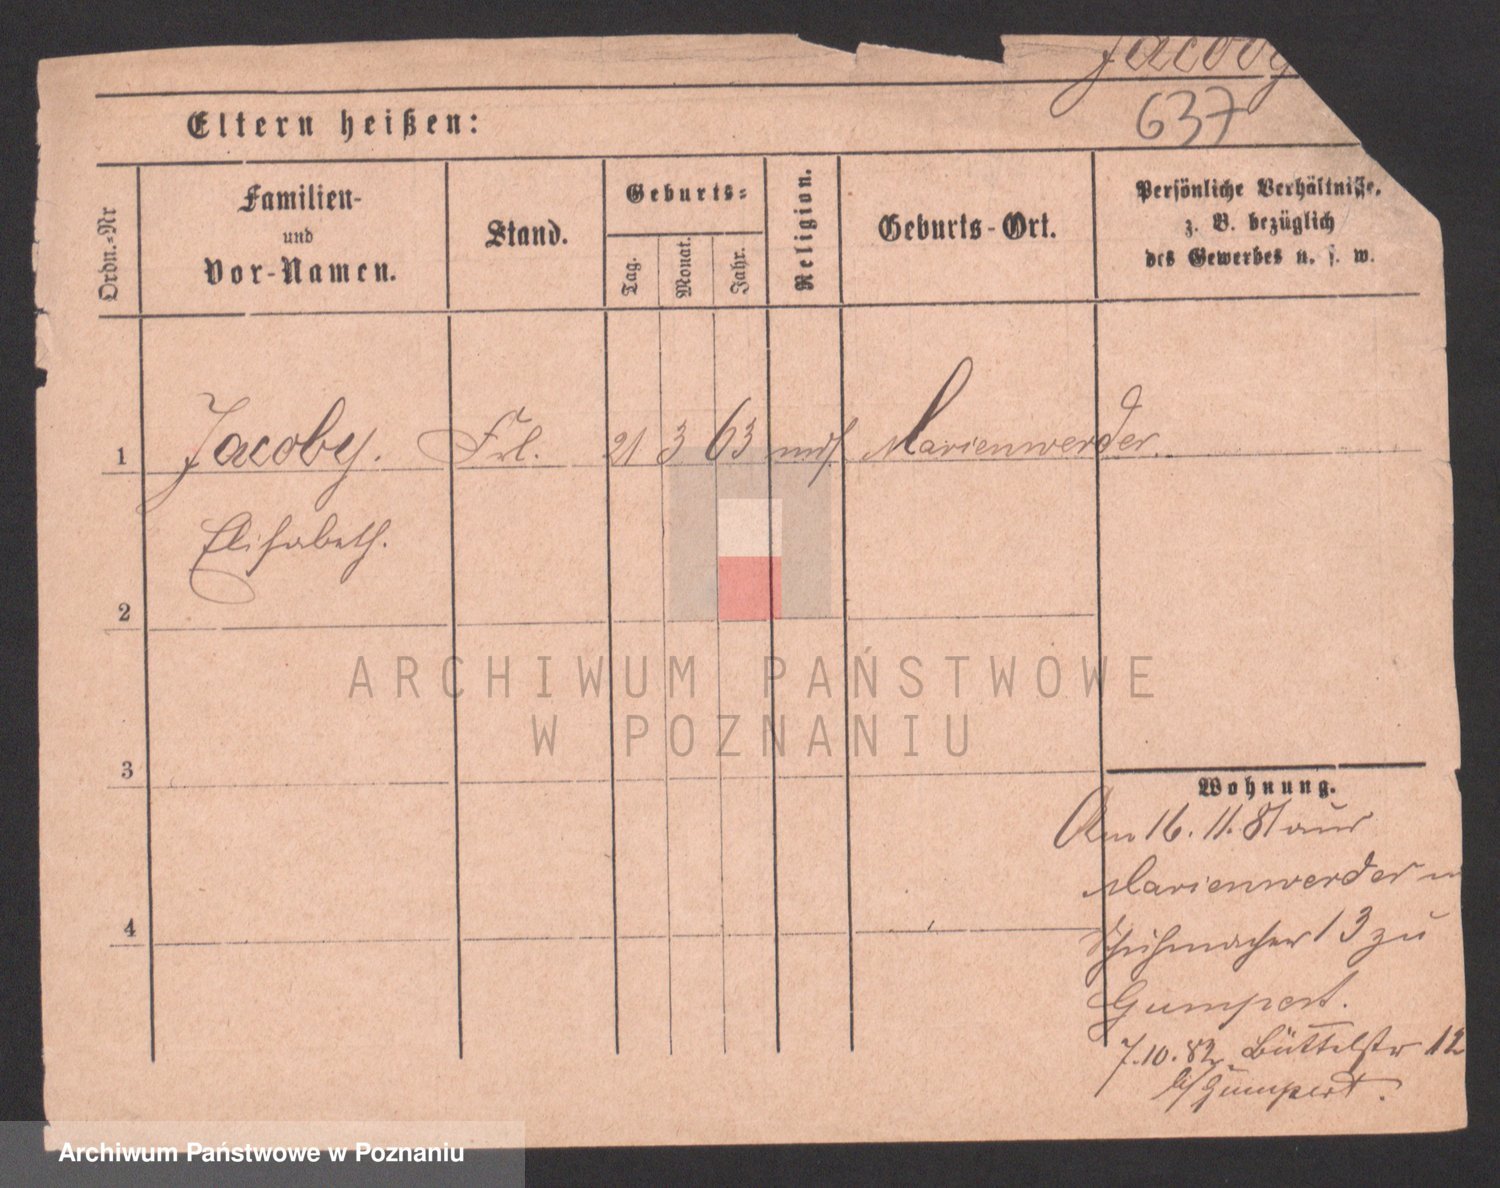 Jacoby
637
Eltern heißen:
Ordn.-Nr
Familien-
und
Vor-Namen.
Stand.
Geburts-
Tag.
Monat.
Jahr.
Religion.
Geburts-Ort.
Persönliche Verhältnisse,
z. B. bezüglich
des Gewerbes u. s. w.
1 Jacoby. Frl. 21 3 63 mos Marienwerder.
Elisabeth.
2
ARCHIWUM PAŃSTWOWE
W POZNANIU
3
Wohnung.
Am 16. 11. 81 aus
Marienwerder n
Schuhmacher 13 zu
Gumpert.
4
7.10.82 Büttelstr 12
b/ Gumpert.
Archiwum Państwowe w Poznaniu